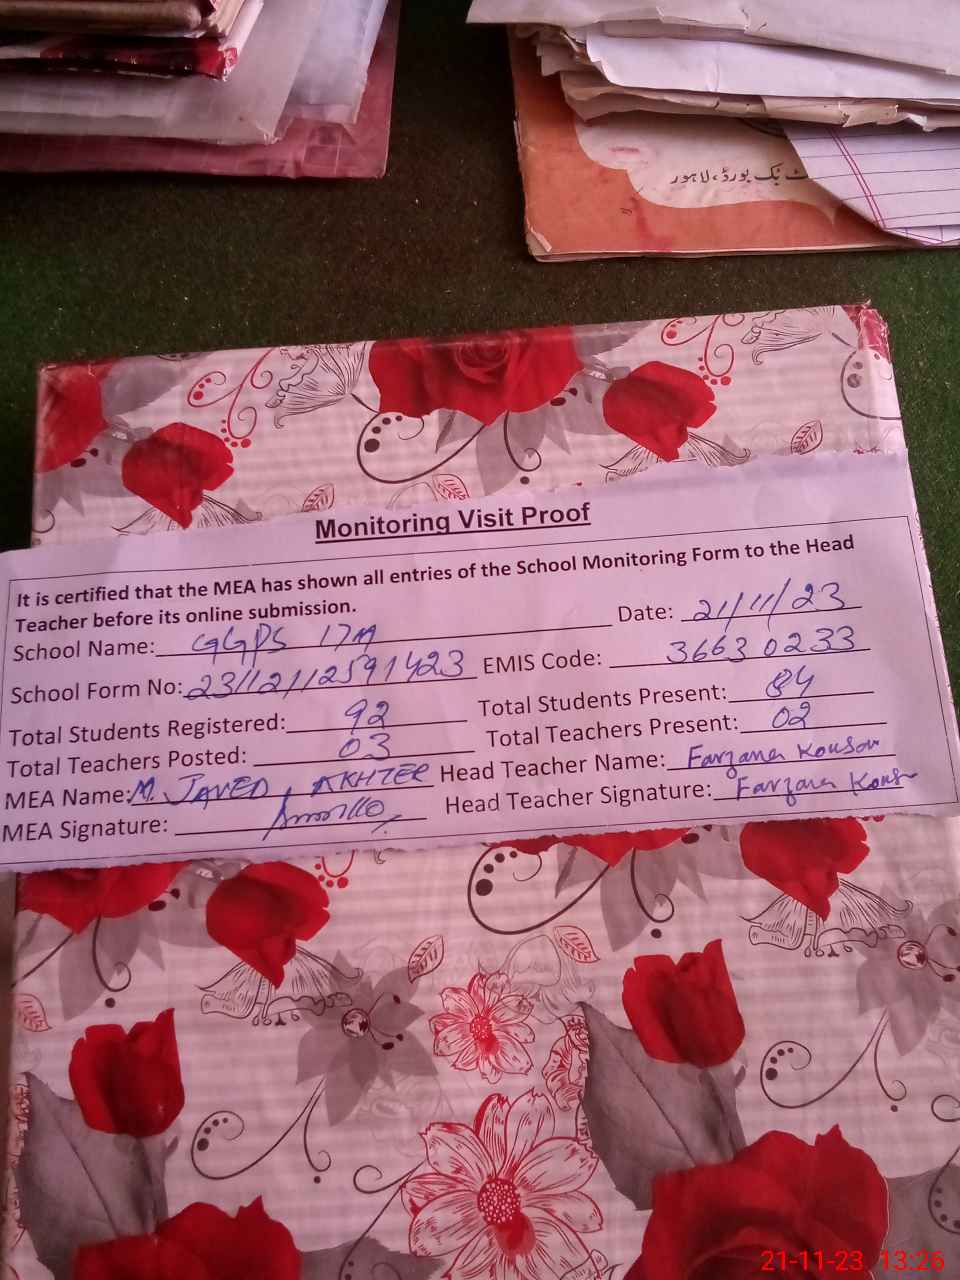 ٹ بک بورڈ، لاہور
Monitoring Visit Proof
It is certified that the MEA has shown all entries of the School Monitoring Form to the Head
Teacher before its online submission.
School Name: GGPS 17M Date: 21/11/23
School Form No: 23112112591423 EMIS Code: 36630233
Total Students Registered: 92 Total Students Present: 84
Total Teachers Posted: 03 Total Teachers Present: 02
MEA Name: M. JAVED, AKHTER Head Teacher Name: Farzana Kousar
MEA Signature: Head Teacher Signature: Farzana Kous
21-11-23 13:26